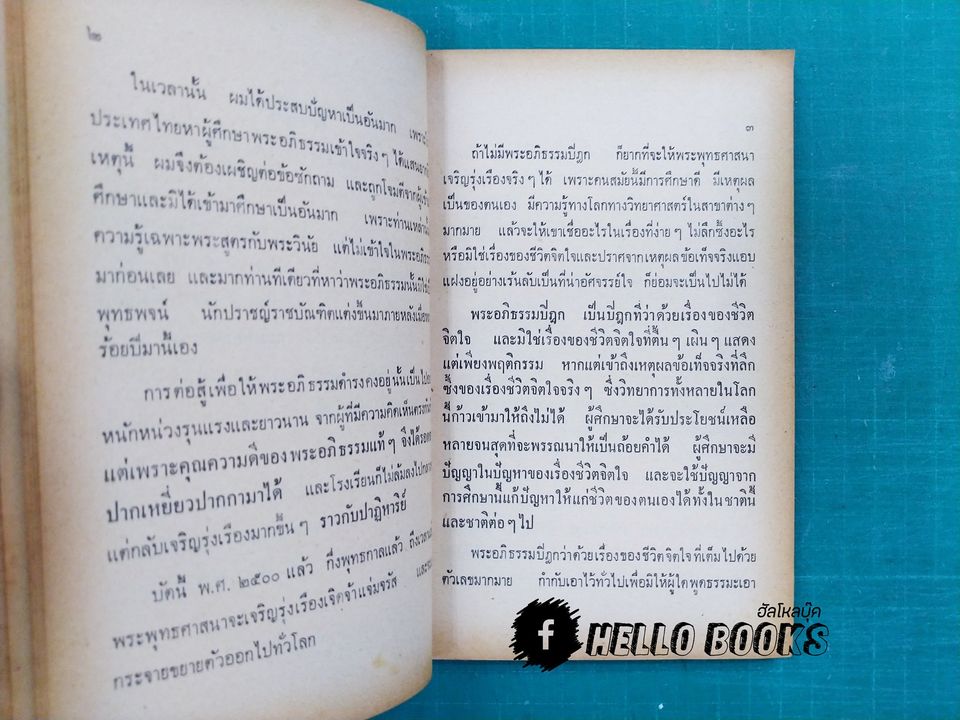 ๒
ในเวลานั้น ผมได้ประสบปัญหาเป็นอันมาก
ประเทศไทยหาผู้ศึกษาพระอภิธรรมเข้าใจจริงๆ ได้แสนยาก
เหตุนี้ ผมจึงต้องเผชิญต่อข้อซักถาม และถูกโจมตีจากผู้
ศึกษาและมิได้เข้ามาศึกษาเป็นอันมาก เพราะท่านเหล่านี้
ความรู้เฉพาะพระสูตรกับพระวินัย แต่ไม่เข้าใจในพระอภิธรรม
มาก่อนเลย และมากท่านทีเดียวที่หาว่าพระอภิธรรมนั้นมิใช่
พุทธพจน์ นักปราชญ์ราชบัณฑิตแต่งขึ้นมาภายหลังเมื่อ
ร้อยปีมานี้เอง
การต่อสู้เพื่อให้พระอภิธรรมดำรงคงอยู่นั้นเป็นไป
หนักหน่วงรุนแรงและยาวนาน จากผู้ที่มีความคิดเห็น
แต่เพราะคุณความดีของพระอภิธรรมแท้ๆ จึงได้รอด
ปากเหยี่ยวปากกามาได้ และโรงเรียนก็ไม่ล้มลงไป
แต่กลับเจริญรุ่งเรืองมากขึ้นๆ ราวกับปาฏิหาริย์
บัดนี้ พ.ศ. ๒๕๐๐ แล้ว กึ่งพุทธกาลแล้ว ถึงเวลา
พระพุทธศาสนาจะเจริญรุ่งเรืองเจิดจ้าแจ่มจรัส และ
กระจายขยายตัวออกไปทั่วโลก
๓
ถ้าไม่มีพระอภิธรรมปิฎก ก็ยากที่จะให้พระพุทธศาสนา
เจริญรุ่งเรืองจริงๆ ได้ เพราะคนสมัยนี้มีการศึกษาดี มีเหตุผล
เป็นของตนเอง มีความรู้ทางโลกทางวิทยาศาสตร์ในสาขาต่างๆ
มากมาย แล้วจะให้เขาเชื่ออะไรในเรื่องที่ง่ายๆ ไม่ลึกซึ้งอะไร
หรือมิใช่เรื่องของชีวิตจิตใจและปราศจากเหตุผลข้อเท็จจริงแอบ
แฝงอยู่อย่างเร้นลับเป็นที่น่าอัศจรรย์ใจ ก็ย่อมจะเป็นไปไม่ได้
พระอภิธรรมปิฎก เป็นปิฎกที่ว่าด้วยเรื่องของชีวิต
จิตใจ และมิใช่เรื่องของชีวิตจิตใจที่ตื้นๆ เผินๆ แสดง
แต่เพียงพฤติกรรม หากแต่เข้าถึงเหตุผลข้อเท็จจริงที่ลึก
ซึ้งของเรื่องชีวิตจิตใจจริงๆ ซึ่งวิทยาการทั้งหลายในโลก
นี้ก้าวเข้ามาให้ถึงไม่ได้ ผู้ศึกษาจะได้รับประโยชน์เหลือ
หลายจนสุดที่จะพรรณนาให้เป็นถ้อยคำได้ ผู้ศึกษาจะมี
ปัญญาในปัญหาของเรื่องชีวิตจิตใจ และจะใช้ปัญญาจาก
การศึกษานี้แก้ปัญหาให้แก่ชีวิตของตนเองได้ทั้งในชาตินี้
และชาติต่อๆ ไป
พระอภิธรรมปิฎกว่าด้วยเรื่องของชีวิตจิตใจที่เต็มไปด้วย
ตัวเลขมากมาย กำกับเอาไว้ทั่วไปเพื่อมิให้ผู้ใดพูดธรรมะเอา
ฮัลโหลบุ๊ค
f HELLO BOOKS